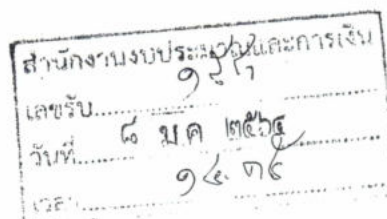 สำนักงานงบประมาณและการเงิน
เลขรับ
วันที่ ๘ มค ๒๕๖๔
เวลา ๑๔.๓๔